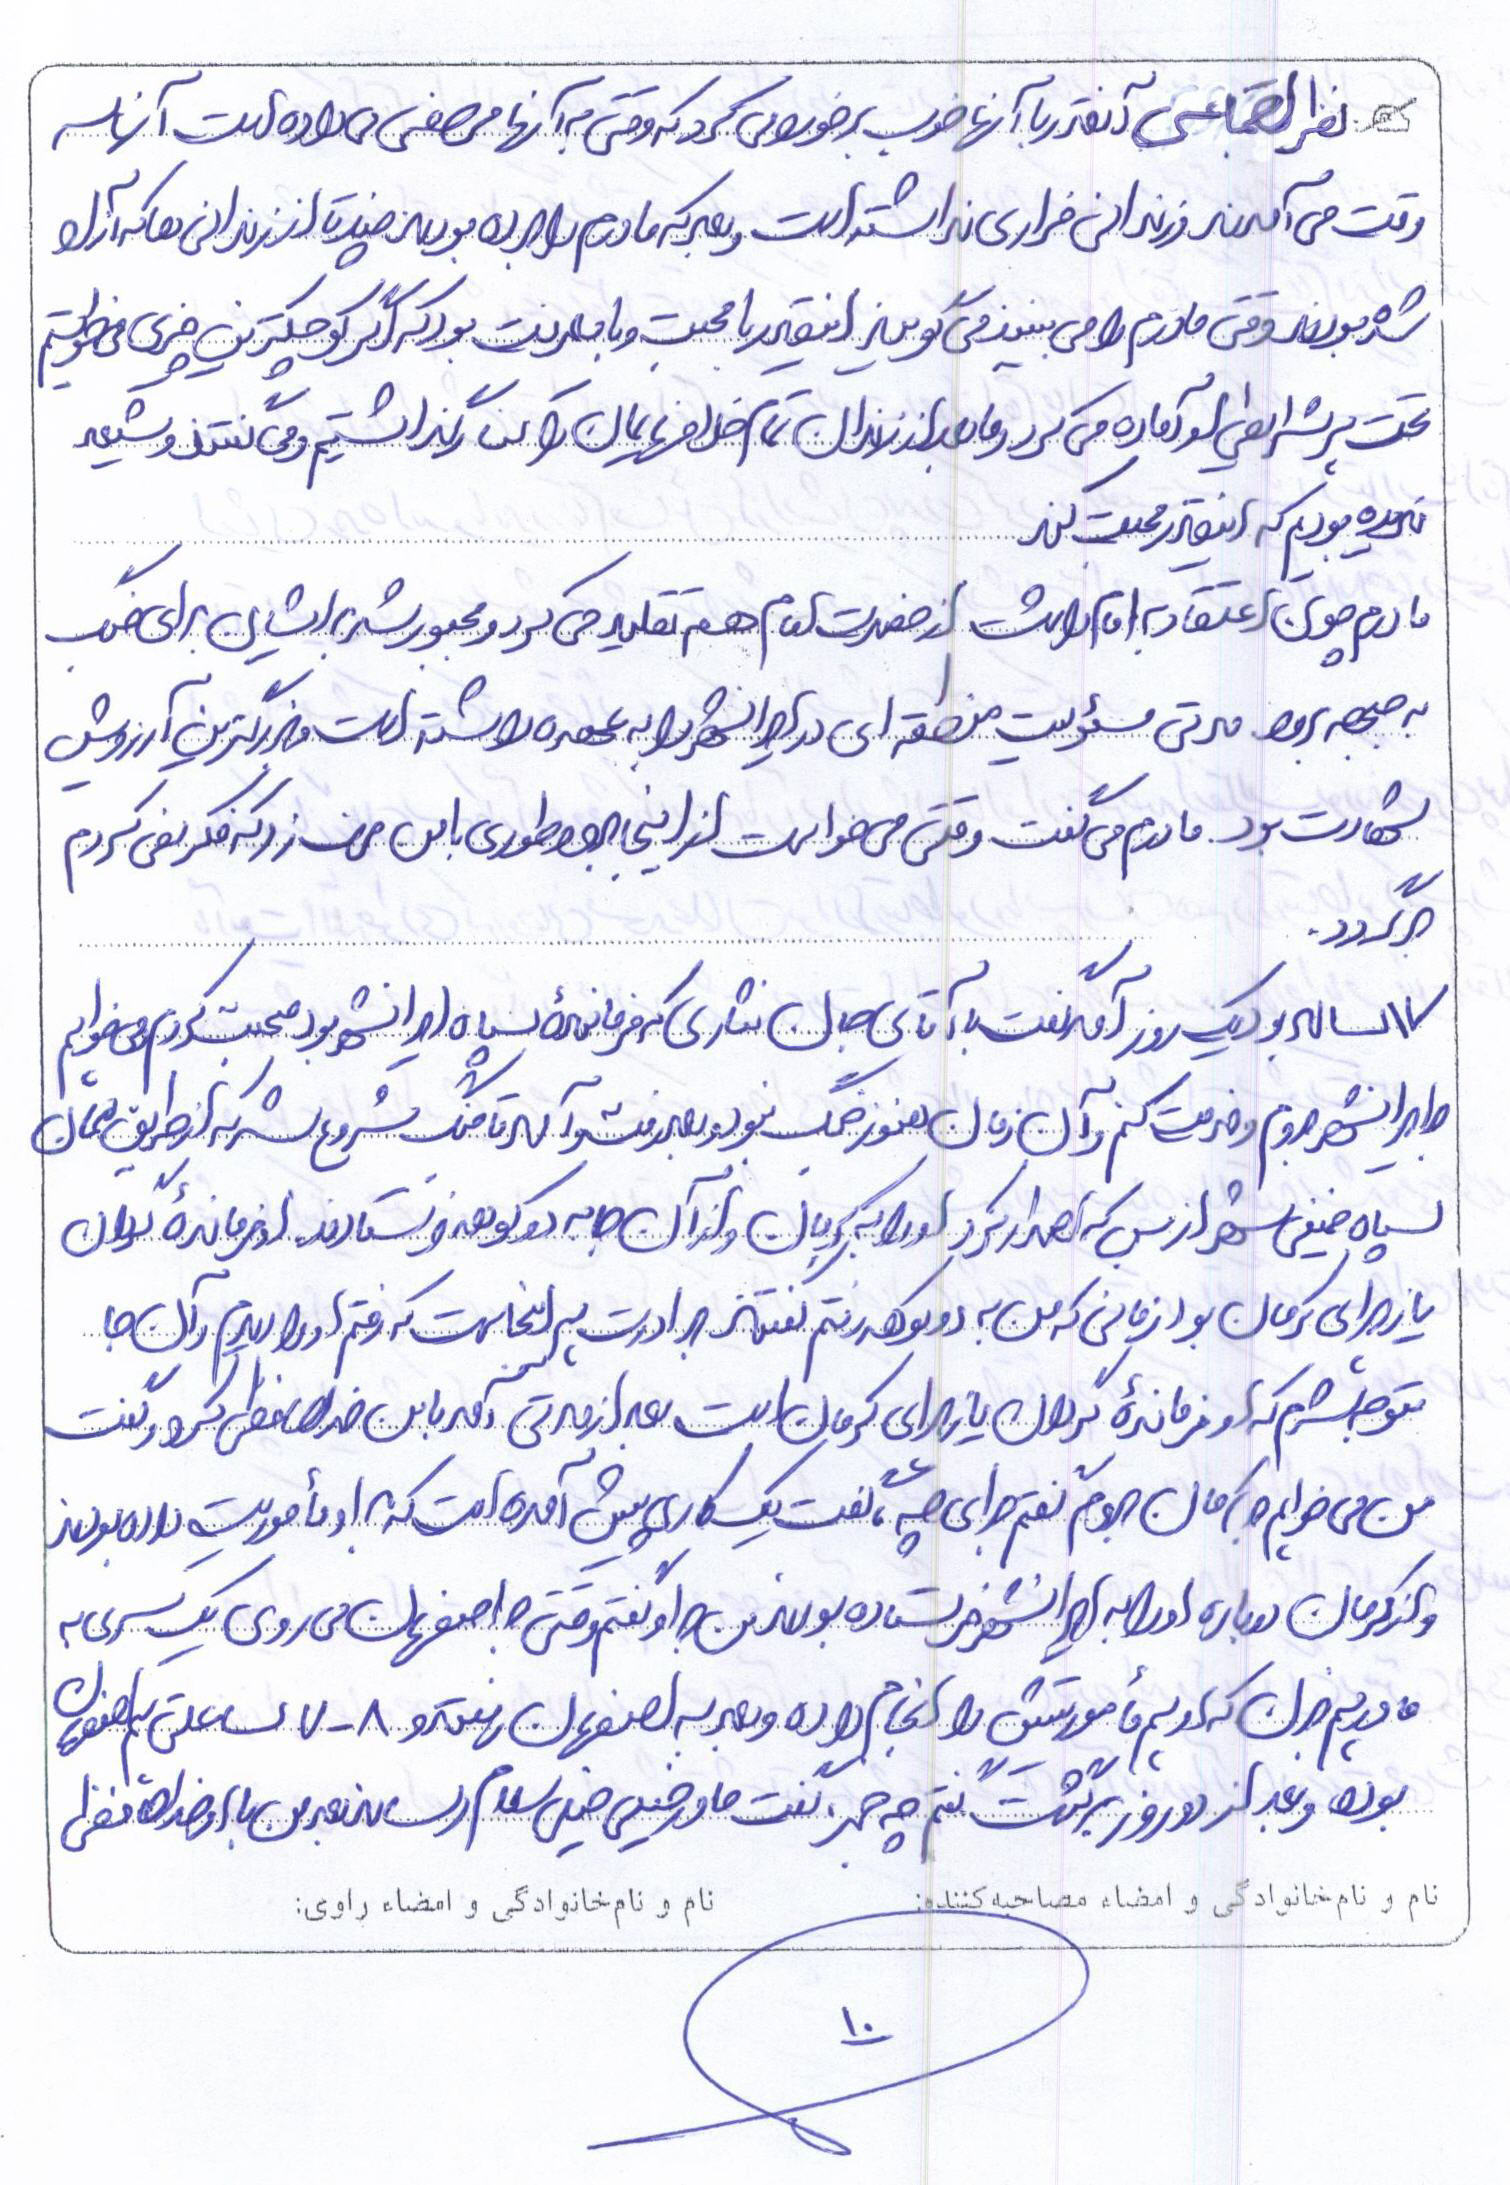 نظر اجتماعی آنقدر با آنها خوب برخورد می کرد که وقتی به آنها مرخصی می داده است آنها سه
وقت می آمدند و زندانی فراری نداشته است و بعد که مادرم را برده بودند چند تا از زندانی ها که آزاد
شده بودند وقتی مادرم را می بینند می گویند اینقدر با محبت و با معرفت بود که اگر کوچکترین چیزی می خواستیم
تحت هر شرایطی او آماده می کرد و ما بعد از زندان تمام خلافهایمان را کنار گذاشتیم و می گفتند و شیعه
ندیده بودیم که اینقدر محبت کند
مادرم چون اعتقاد به امام داشت از حضرت امام هم تقلید می کرد و مجبور شد برایشان برای جنگ
به جبهه برود. مدتی مسؤلیت منطقه ای در ایرانشهر را به عهده داشته است و بزرگترین آرزویش
شهادت بود. مادرم می گفت وقتی می خواست از اینجا برود طوری با من حرف زد که فکر نمی کردم
برگردد.
۱۷ ساله بود یک روز آمد گفت با آقای جان نثاری که فرماندهٔ سپاه ایرانشهر بود صحبت کردم می خواهم
به ایرانشهر بروم و خدمت کنم و آن زمان هنوز جنگ نبود و بعد رفت و آمد تا جنگ شروع شد که از طریق همان
سپاه خمینی شهر از بس که اصرار کرد او را به کرمان و از آن جا به دوکوهه فرستادند. او فرماندهٔ گردان
یا زهرای کرمان بود از زمانی که من به دوکوهه رفتم گفتند برادرت هم اینجاست که رفتم او را دیدم و آن جا
متوجه شدم که او فرماندهٔ گردان یا زهرای کرمان است بعد از مدتی آمد با من خداحافظی کرد و گفت
من می خواهم به کرمان بروم گفتم برای چه؟ گفت یک کاری پیش آمده است که به او مأموریت داده بودند
و از کرمان دوباره او را به ایرانشهر فرستاده بودند من به او گفتم وقتی به اصفهان می روی یک سری به
مادر هم بزن که او هم مأموریتش را انجام داده و بعد به اصفهان رفته و ۸-۷ ساعتی هم اصفهان
بوده و بعد از دو روز برگشت گفتم چه خبر، گفت مادر خیلی خیلی سلام رساند بعد من با او خداحافظی
نام و نام خانوادگی و امضاء مصاحبه کننده:
نام و نام خانوادگی و امضاء راوی:
۱۰